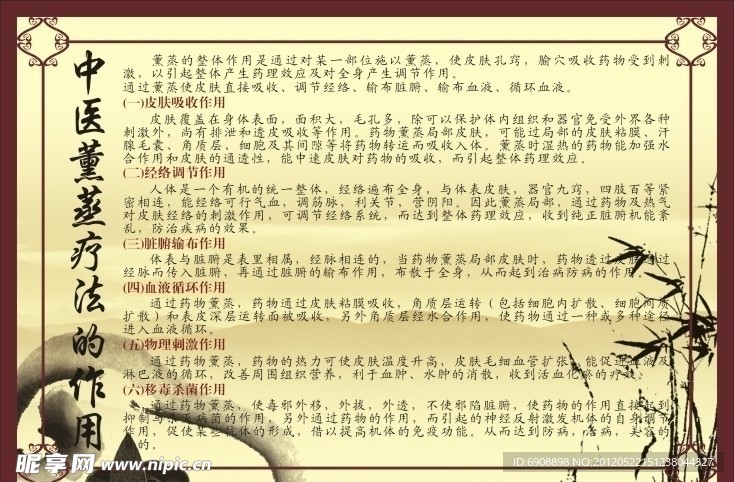 中医薰蒸疗法的作用
薰蒸的整体作用是通过对某一部位施以薰蒸，使皮肤孔窍，腧穴吸收药物受到刺
激，以引起整体产生药理效应及对全身产生调节作用。
通过薰蒸使皮肤直接吸收、调节经络、输布脏腑、输布血液、循环血液。
(一)皮肤吸收作用
皮肤覆盖在身体表面，面积大，毛孔多，除可以保护体内组织和器官免受外界各种
刺激外，尚有排泄和透皮吸收等作用。药物薰蒸局部皮肤，可能过局部的皮肤粘膜、汗
腺毛囊、角质层、细胞及其间隙等将药物转运而吸收入体。薰蒸时湿热的药物能加强水
合作用和皮肤的通透性，能中速皮肤对药物的吸收，而引起整体药理效应。
(二)经络调节作用
人体是一个有机的统一整体，经络遍布全身，与体表皮肤，器官九窍，四肢百等紧
密相连，能经络可行气血，调筋脉，利关节，营阴阳。因此薰蒸局部，通过药物及热气
对皮肤经络的刺激作用，可调节经络系统，而达到整体药理效应，收到纯正脏腑机能紊
乱，防治疾病的效果。
(三)脏腑输布作用
体表与脏腑是表里相属，经脉相连的，当药物薰蒸局部皮肤时，药物透过皮肤通过
经脉而传入脏腑，再通过脏腑的输布作用，布散于全身，从而起到治病防病的作用
(四)血液循环作用
通过药物薰蒸，药物通过皮肤粘膜吸收，角质层运转（包括细胞内扩散、细胞间质
扩散）和表皮深层运转面被吸收，另外角质层经水合作用，使药物通过一种或多种途径
进入血液循环。
(五)物理刺激作用
通过药物薰蒸，药物的热力可使皮肤温度升高，皮肤毛细血管扩张，能促进血液及
淋巴液的循环，改善周围组织营养，利于血肿、水肿的消散，收到活血化瘀的疗效。
(六)移毒杀菌作用
通过药物薰蒸，使毒邪外移，外拔，外透，不使邪陷脏腑，使药物的作用直接起到
抑制与杀灭病菌的作用，另外通过药物的作用，而引起的神经反射激发机体的自身调节
作用，促使某些抗体的形成，借以提高机体的免疫功能。从而达到防病，治病，美容的
目的。
昵享网 www.nipic.cn
ID:6908898 NO:20120522151238044327